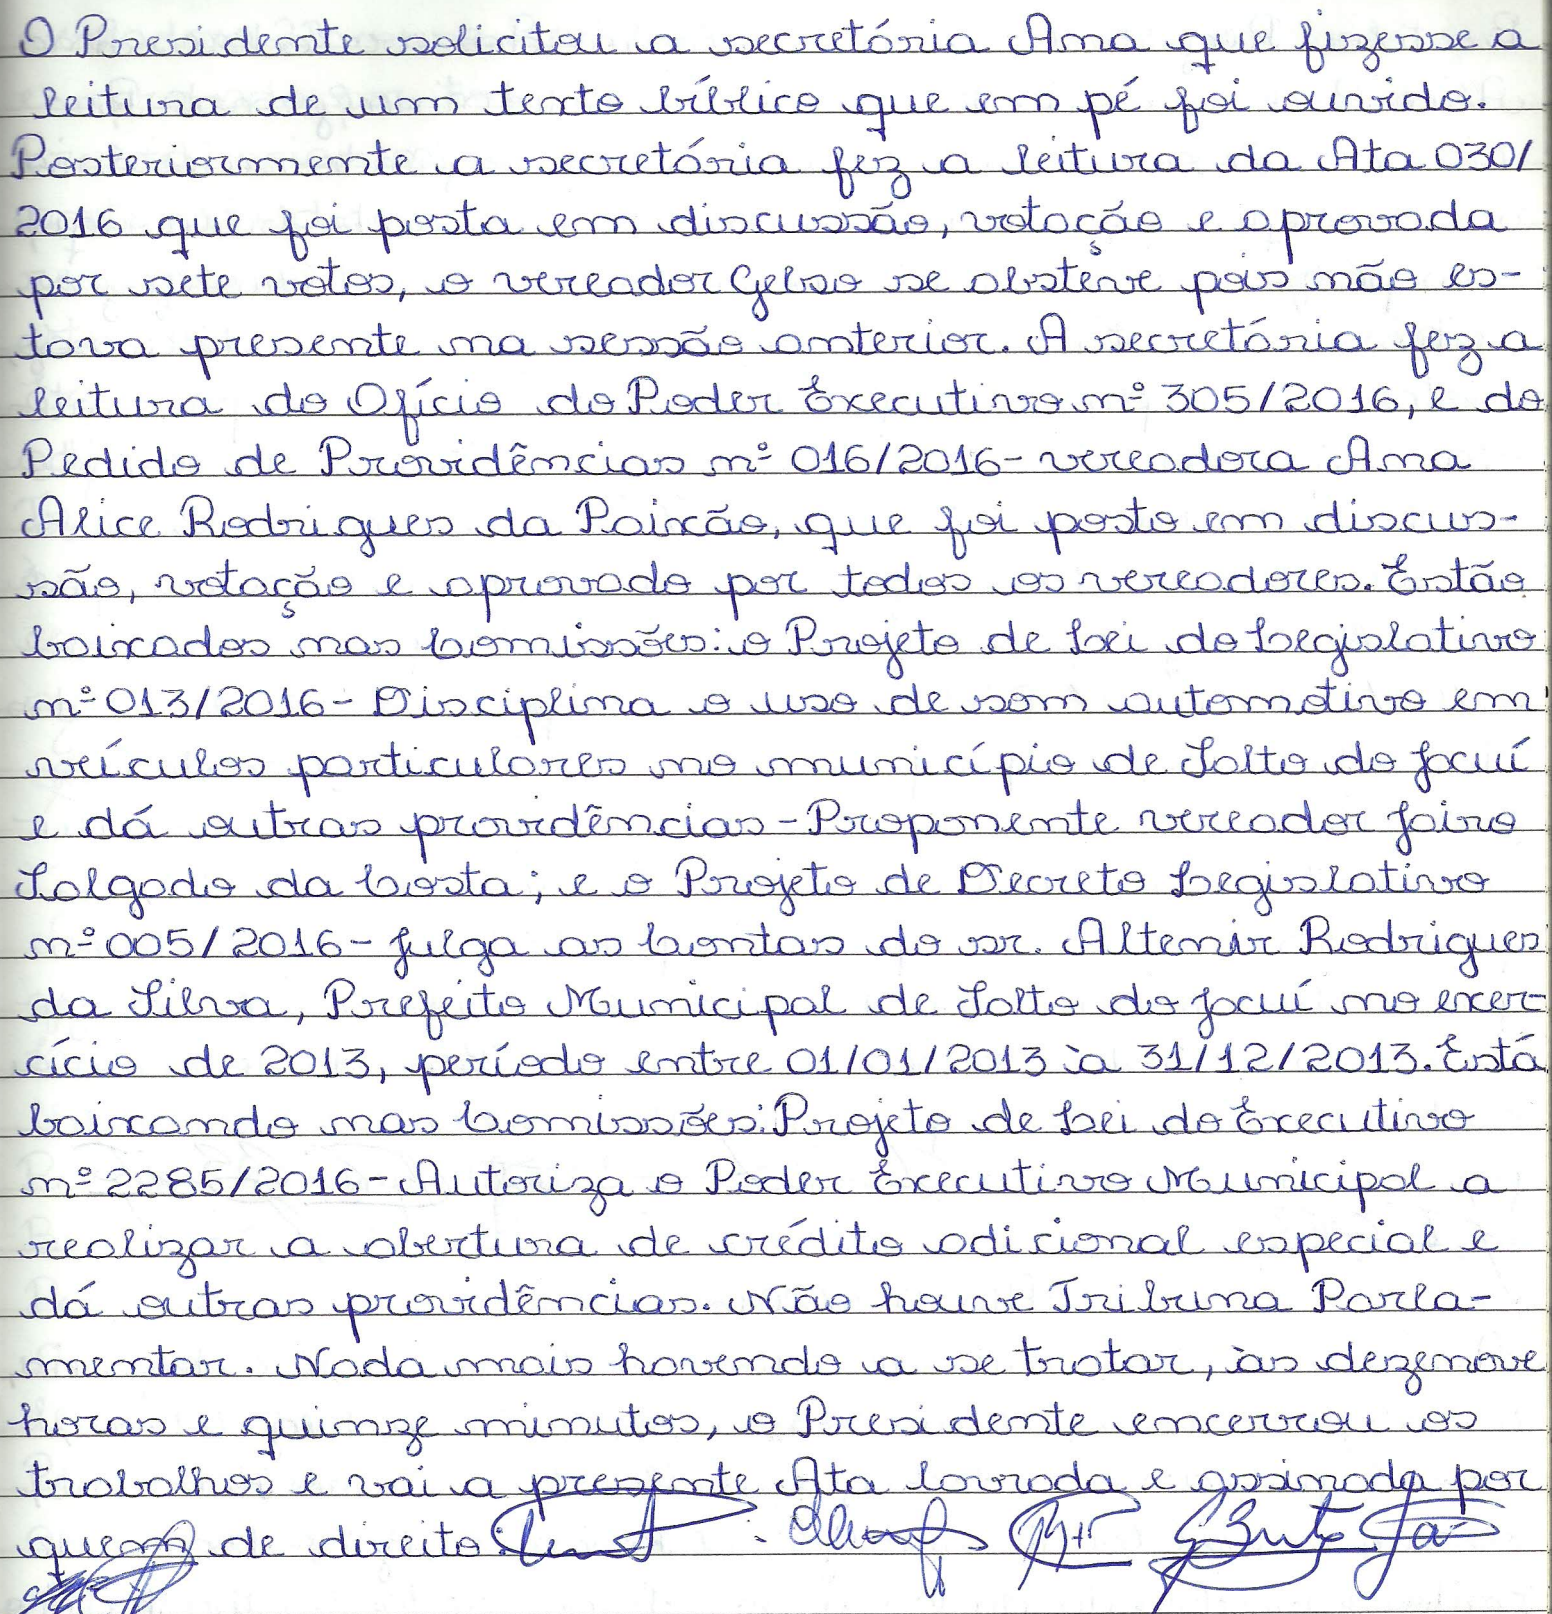 O Presidente solicitou a secretária Ana que fizesse a
leitura de um texto bíblico que em pé foi ouvido.
Posteriormente a secretária fez a leitura da Ata 030/
2016 que foi posta em discussão, votação e aprovada
por sete votos, o vereador Gelso se obsteve pois não es-
tava presente na sessão anterior. A secretária fez a
leitura do Ofício do Poder Executivo nº 305/2016, e do
Pedido de Providências nº 016/2016- vereadora Ana
Alice Rodrigues da Paixão, que foi posto em discus-
são, votação e aprovado por todos os vereadores. Estão
baixados nas Comissões: o Projeto de Lei do Legislativo
nº 013/2016- Disciplina o uso de som automotivo em
veículos particulares no município de Salto do Jacuí
e dá outras providências - Proponente vereador Jairo
Salgado da Costa; e o Projeto de Decreto Legislativo
nº 005/2016- Julga as Contas do sr. Altenir Rodrigues
da Silva, Prefeito Municipal de Salto do Jacuí no exer-
cício de 2013, período entre 01/01/2013 à 31/12/2013. Está
baixando nas Comissões: Projeto de Lei do Executivo
nº 2285/2016- Autoriza o Poder Executivo Municipal a
realizar a abertura de crédito adicional especial e
dá outras providências. Não houve Tribuna Parla-
mentar. Nada mais havendo a se tratar, às dezenove
horas e quinze minutos, o Presidente encerrou os
trabalhos e vai a presente Ata lavrada e assinada por
quem de direito: